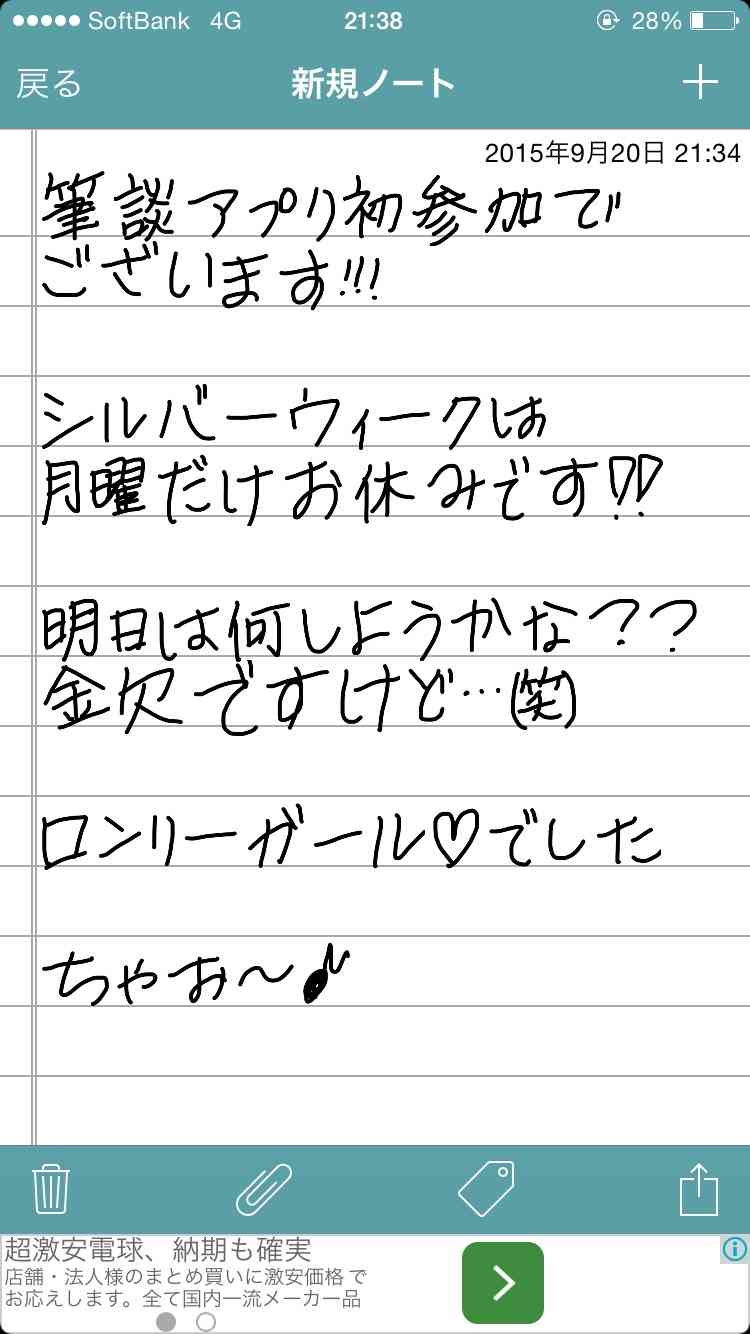 SoftBank 4G 21:38 28%
戻る 新規ノート
2015年9月20日 21:34
筆談アプリ初参加で
ございます!!!
シルバーウィークは
月曜だけお休みです!!
明日は何しようかな？？
金欠ですけど…(笑)
ロンリーガール♡でした
ちゃお〜♪
超激安電球、納期も確実
店舗・法人様のまとめ買いに激安価格で
お応えします。全て国内一流メーカー品